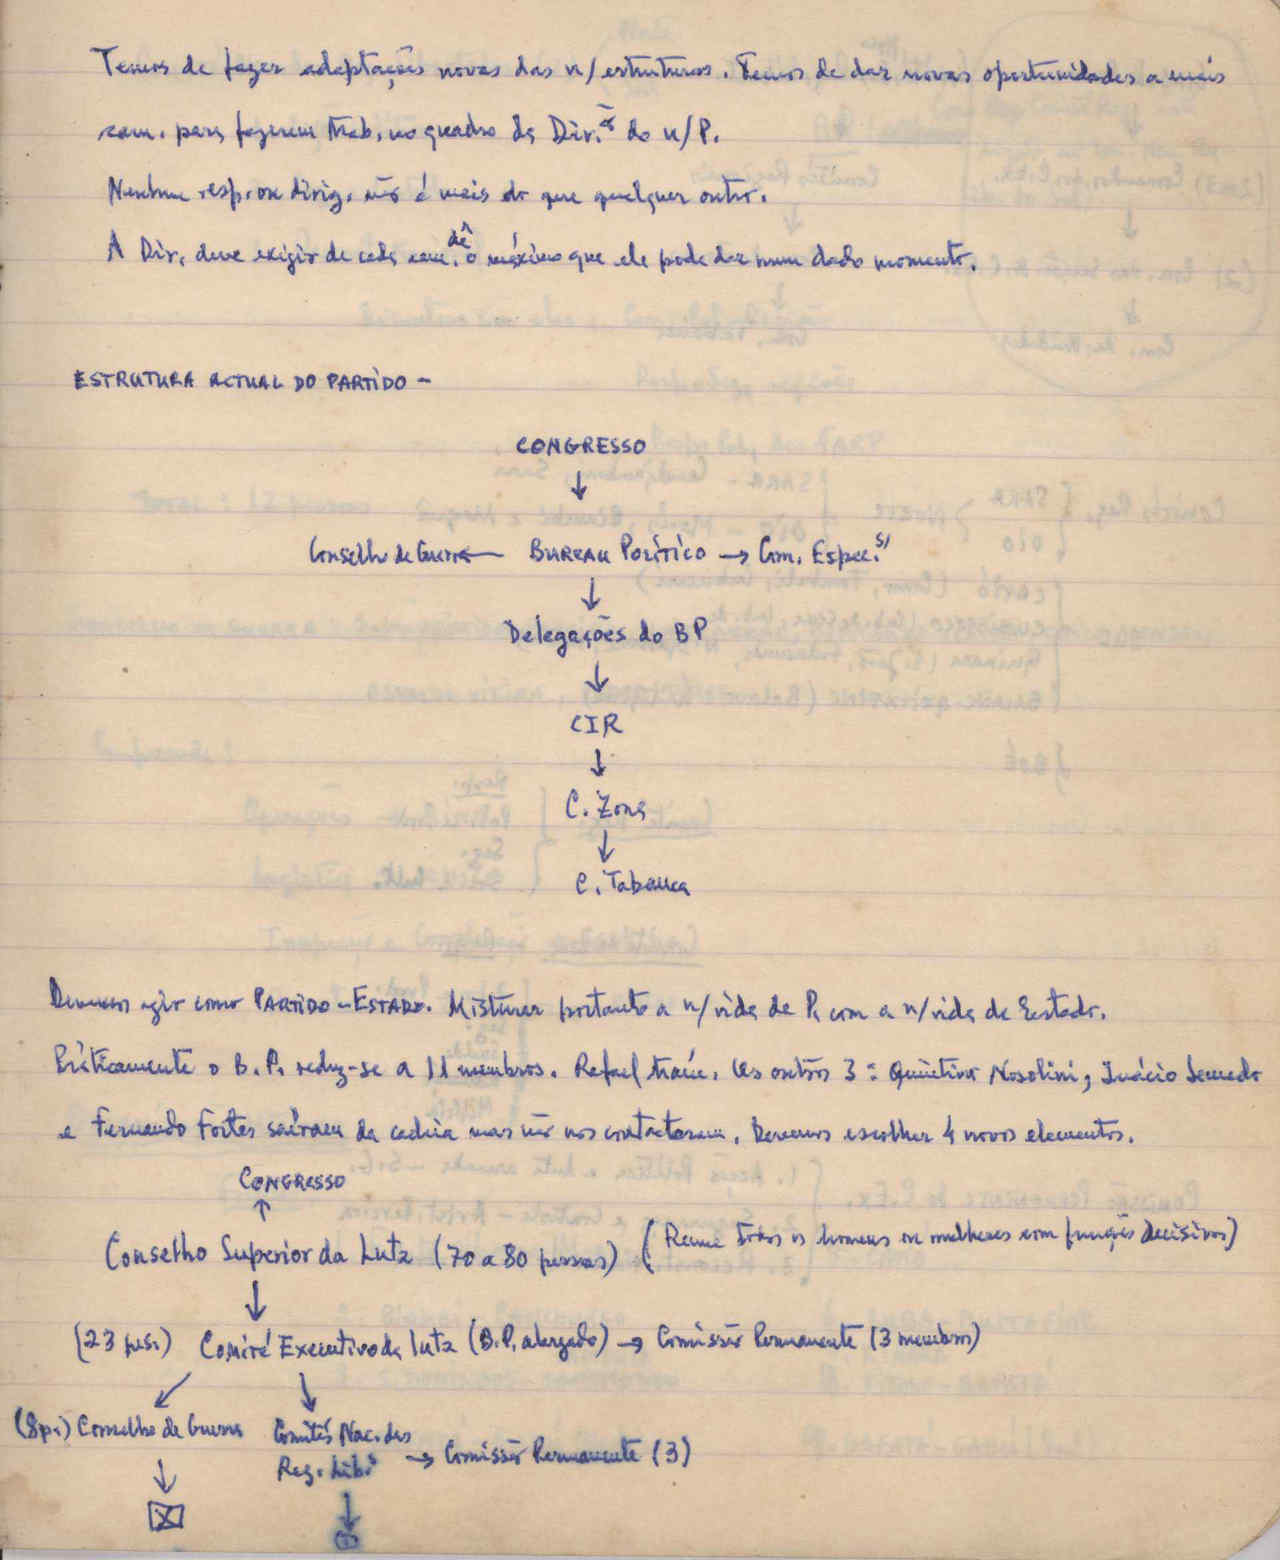 Temos de fazer adaptações novas das n/estruturas. Temos de dar novas oportunidades a mais
cam. para fazerem trab. no quadro da Dir.ão do n/P.
Nenhum resp. ou dirig. não é mais do que qualquer outro.
A Dir. deve exigir de cada cam. dê o máximo que ele pode dar num dado momento.
ESTRUTURA ACTUAL DO PARTIDO -
CONGRESSO
↓
Conselho de Guerra ← BUREAU POLÍTICO → Com. Espec.s/
↓
Delegações do BP
↓
CIR
↓
C. Zona
↓
C. Tabanca
Devemos agir como PARTIDO-ESTADO. Misturar portanto a n/vida de P. com a n/vida de Estado.
Práticamente o B.P. reduz-se a 11 membros. Rafael traíu. Os outros 3: Quintino Nosolini, Inácio Semedo
e Fernando Fortes saíram da cadeia mas não nos contactaram. Devemos escolher 4 novos elementos.
CONGRESSO
↑
Conselho Superior da Luta (70 a 80 pessoas) (Reune todos os homens ou mulheres com funções decisivas)
↓
(23 pes.) Comité Executivo da Luta (B.P. alargado) → Comissão Permanente (3 membros)
↙ ↓
(8 p.) Conselho de Guerra Comités Nac. das
Reg. Lib.s → Comissão Permanente (3)
↓ ↓